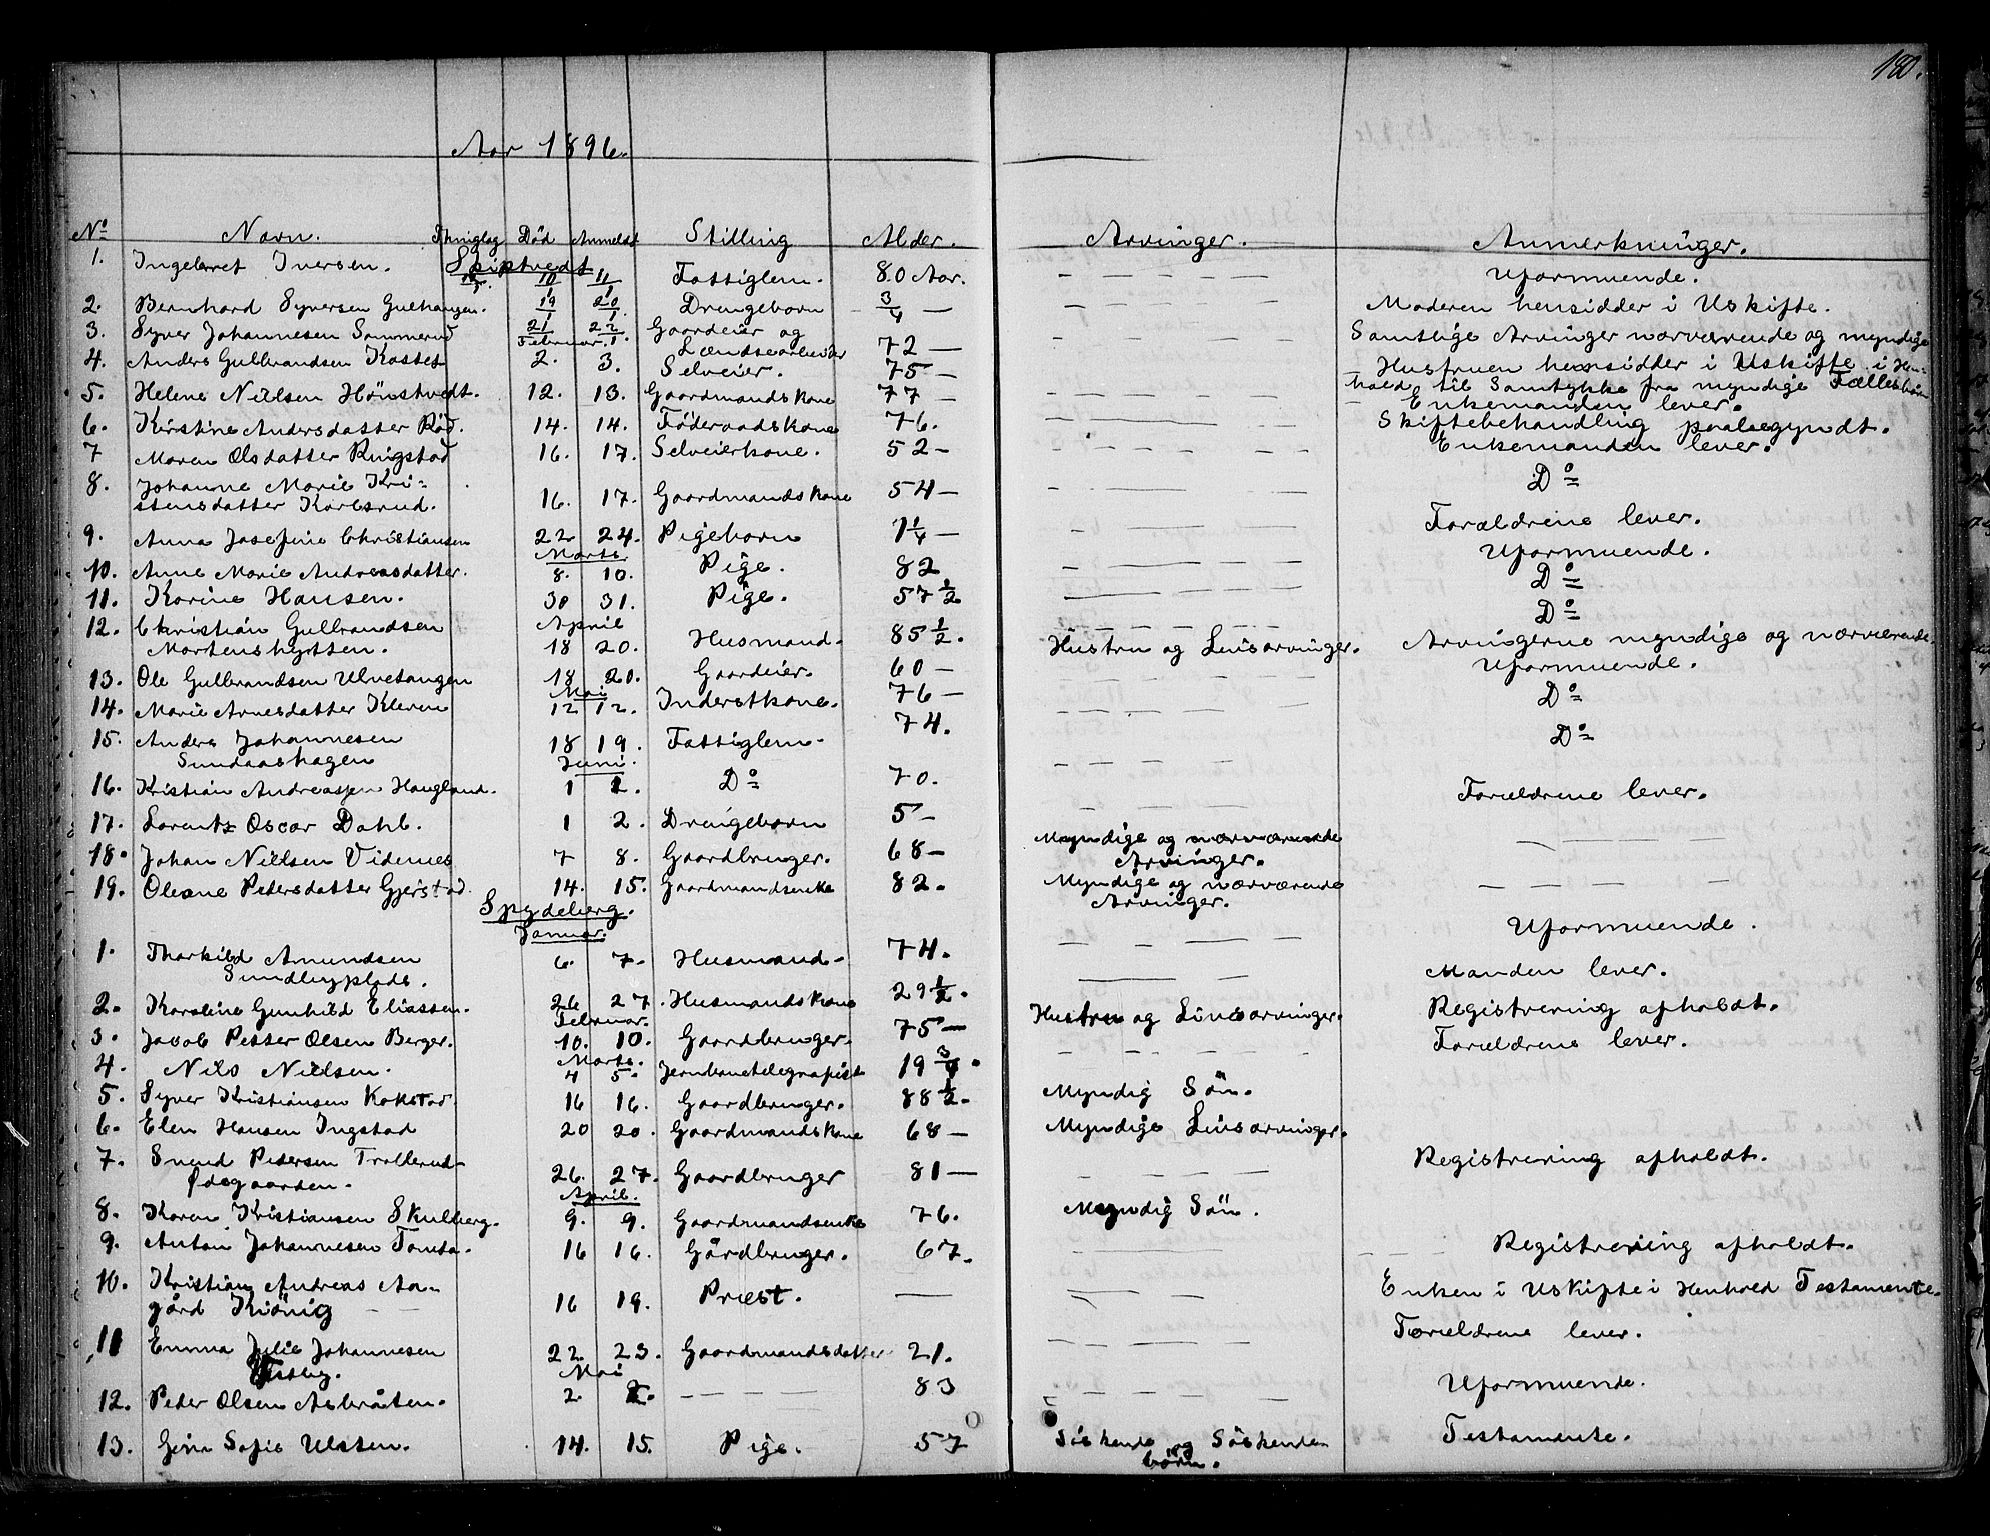 180.
Aar 1896.
No Navn. Thinglag Död Anmeldt Stilling Alder. Arvinger. Anmerkninger.
Skiptvedt
1. Ingebret Iversen. 10/1 11/1 Fattiglem. 80 Aar. — — — — Uformuende.
2. Bernhard Syversen Gulhaugen. 19/1 20/1. Drengebarn 3/4 — — — — — Moderen hensidder i Uskifte.
3. Syver Johannesen Sommerud 21/1 22/1. Gaardeier og Samtlige Arvinger nærværende og myndige
Lændsearbeider 72 —
Februar.
4. Anders Gulbrandsen Kastet 2. 3. Selveier. 75 — Hustruen hensidder i Uskifte i Hen-
hold til Samtykke fra myndige Fællesbörn
5. Helene Nielsen Hönstvedt. 12. 13. Gaardmandskone 77 — Enkemanden lever.
6. Kirstine Andersdatter Röd. 14. 14. Föderaadskone 76. Skiftebehandling paabegyndt.
7 Maren Olsdatter Ringstad 16. 17. Selveierkone. 52 — Enkemanden lever.
8. Johanne Marie Kri-
stensdatter Karlsrud. 16. 17. Gaardmandskone 54 — Do
9. Anna Josefine Christiansen 22 24. Pigebarn 1 1/4 — Forældrene lever.
Marts
10. Anne Marie Andreasdatter. 8. 10. Pige. 82 Uformuende.
11. Karine Hansen. 30 31. Pige. 57 1/2 Do
April
12. Christian Gulbrandsen Do
Mortenshytten. 18 20. Husmand. 85 1/2.
13. Ole Gulbrandsen Ulvetangen 18 20. Gaardeier. 60 — Hustru og Livsarvinger. Arvingerne myndige og nærværende.
Mai
14. Marie Arnesdatter Kleven 12 12. Inderstkone. 76 — Uformuende.
15. Anders Johannesen 18 19. Fattiglem. 74. Do
Sundaashagen
Juni.
16. Kristian Andreassen Haugland. 1 2. Do 70. Do
17. Lorentz Oscar Dahl. 1 2. Drengebarn 5 — Forældrene lever.
18. Johan Nielsen Videnes 7 8. Gaardbruger. 68 — Myndige og nærværende
Arvinger.
19. Oleane Pedersdatter Gjerstad. 14. 15. Gaardmandsenke 82. Myndige og nærværende
Arvinger.
Spydeberg.
Januar.
1. Thorkild Amundsen 6. 7. Husmand. 74. Uformuende.
Sundbyplads.
2. Karoline Gunhild Eliassen. 26 27. Husmandskone 29 1/2. Manden lever.
Februar.
3. Jacob Petter Olsen Berger. 10. 10. Gaardbruger. 75 — Hustru og Livsarvinger. Registrering afholdt.
Marts.
4. Nils Nielsen. 4 5. Jernbanetelegrafist 19 3/4. Forældrene lever.
5. Syver Kristiansen Kokstad. 16 16. Gaardbruger. 88 1/2. Myndig Sön.
6. Elen Hansen Ingstad 20 20. Gaardmandskone 68 — Myndige Livsarvinger.
7. Svend Pedersen Trollerud- 26. 27. Gaardbruger 81 — Registrering afholdt.
Ödegaarden.
April.
8. Karen Kristiansen Skulberg. 9. 9. Gaardmandsenke 76. Myndig Sön.
9. Anton Johannesen Tomta. 16 16. Gårdbruger. 67. Registrering afholdt.
10. Kristian Andreas Aa-
gård Kiönig 16 19. Præst. — Enken i Uskifte i Henhold Testamente.
11 Emma Julie Johannesen 22 23. Gaardmandsdatter 21. Forældrene lever.
Östby.
Mai
12. Peder Olsen Asbråten. 2. 2. — — — — 83 Uformuende.
13. Gina Sofie Ulsten. 14. 15. Pige. 57 Söskende og Söskende- Testamente.
börn.